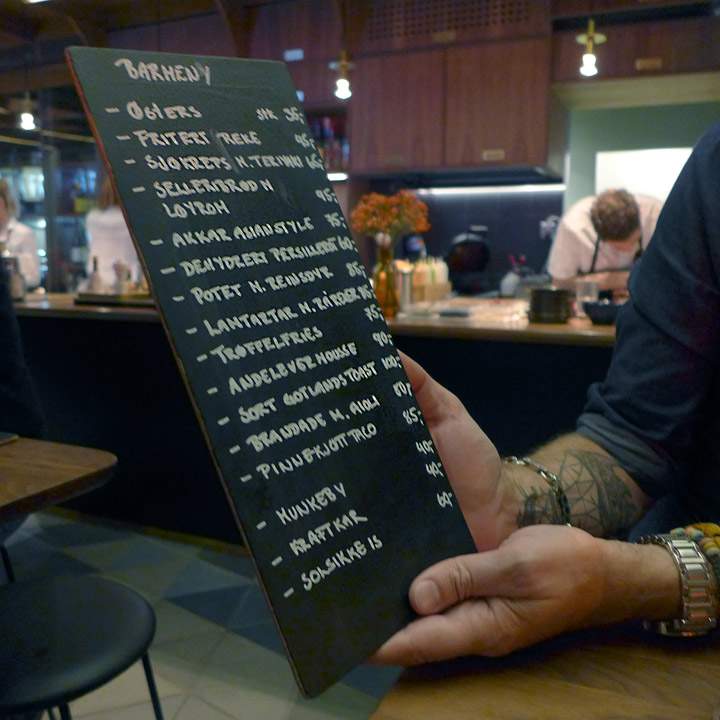 BARMENY
- ØSTERS STK 35,-
- FRITERT REKE 95,-
- SJØKREPS M. TERIYAKI 65,-
- SELLERIBRØD M
LØYROM 95,-
- AKKAR ASIAN STYLE 75,-
- DEHYDRERT PERSILLEROT 60,-
- POTET M. REINSDYR 85,-
- LAMTARTAR M. RÅRØRDE
- TRØFFELFRIES 75,-
- ANDELEVERMOUSSE 90,-
- SORT GOTLANDSTOAST 100,-
- BRANDADE M. AIOLI 80,-
- PINNEKJØTTTACO 85,-
- MUNKEBY 40,-
- KRAFTKAR 40,-
- SOLSIKKEIS 60,-